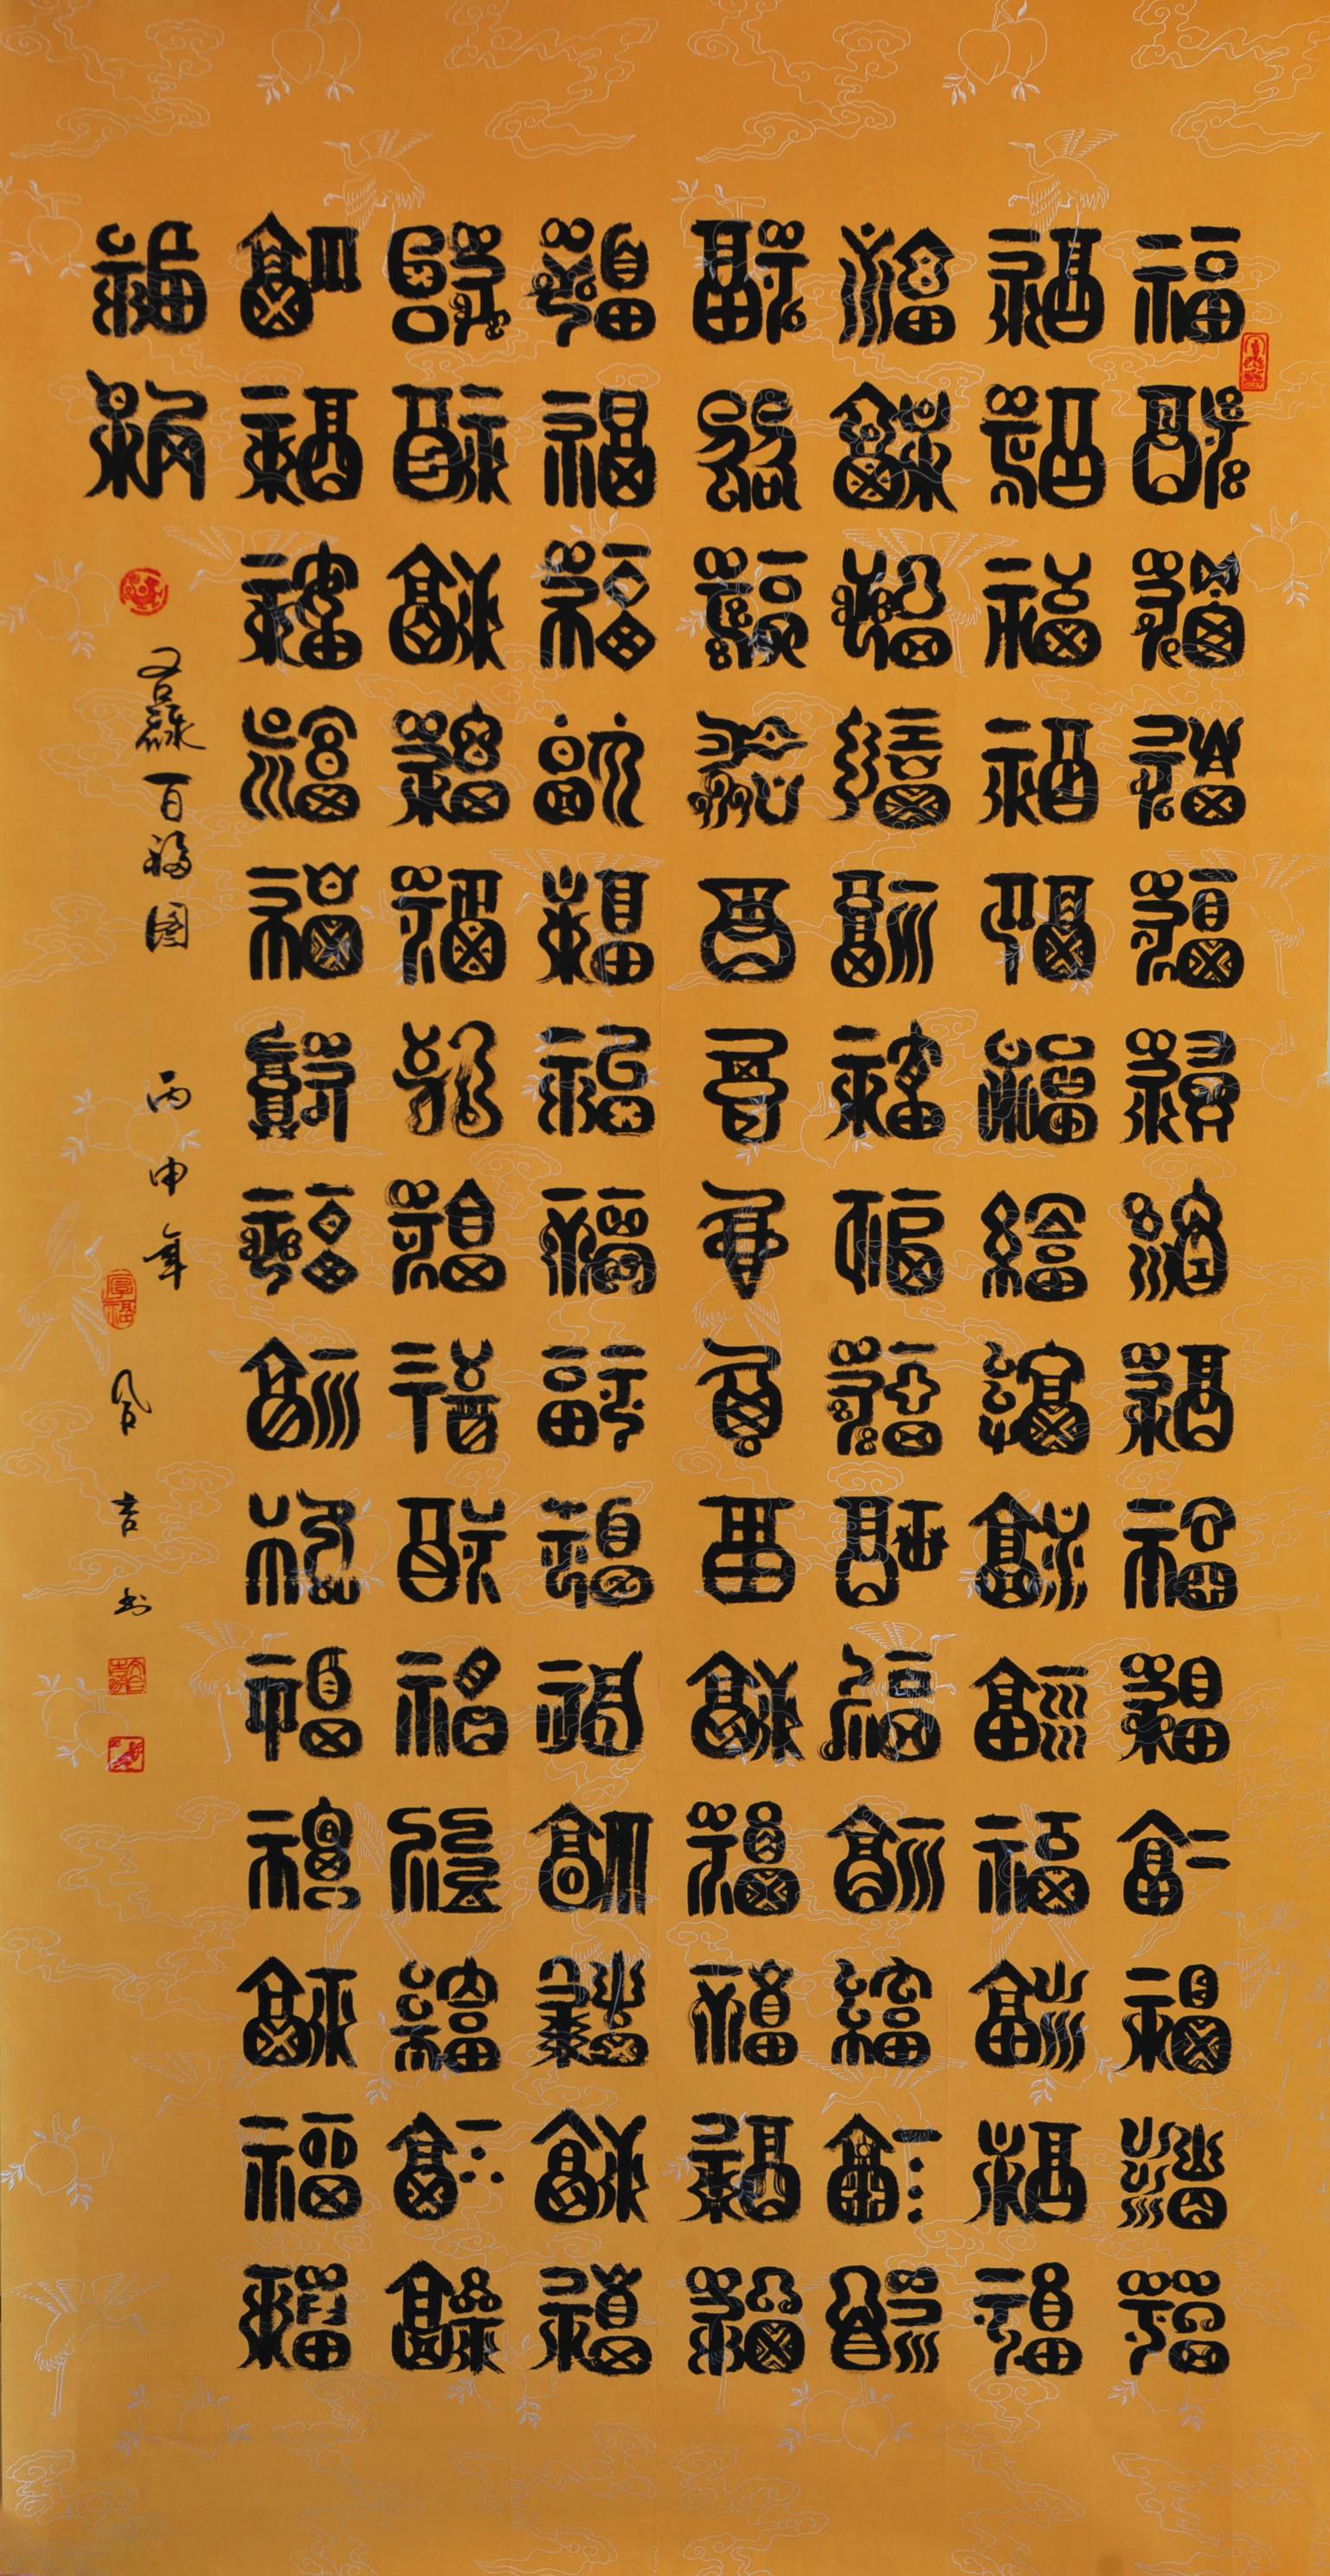 福福福福福福福福福福福福福福
福福福福福福福福福福福福福福
福福福福福福福福福福福福福福
福福福福福福福福福福福福福福
福福福福福福福福福福福福福福
福福福福福福福福福福福福福福
福福福福福福福福福福福福福福
福福
百福图 丙申年
吉书